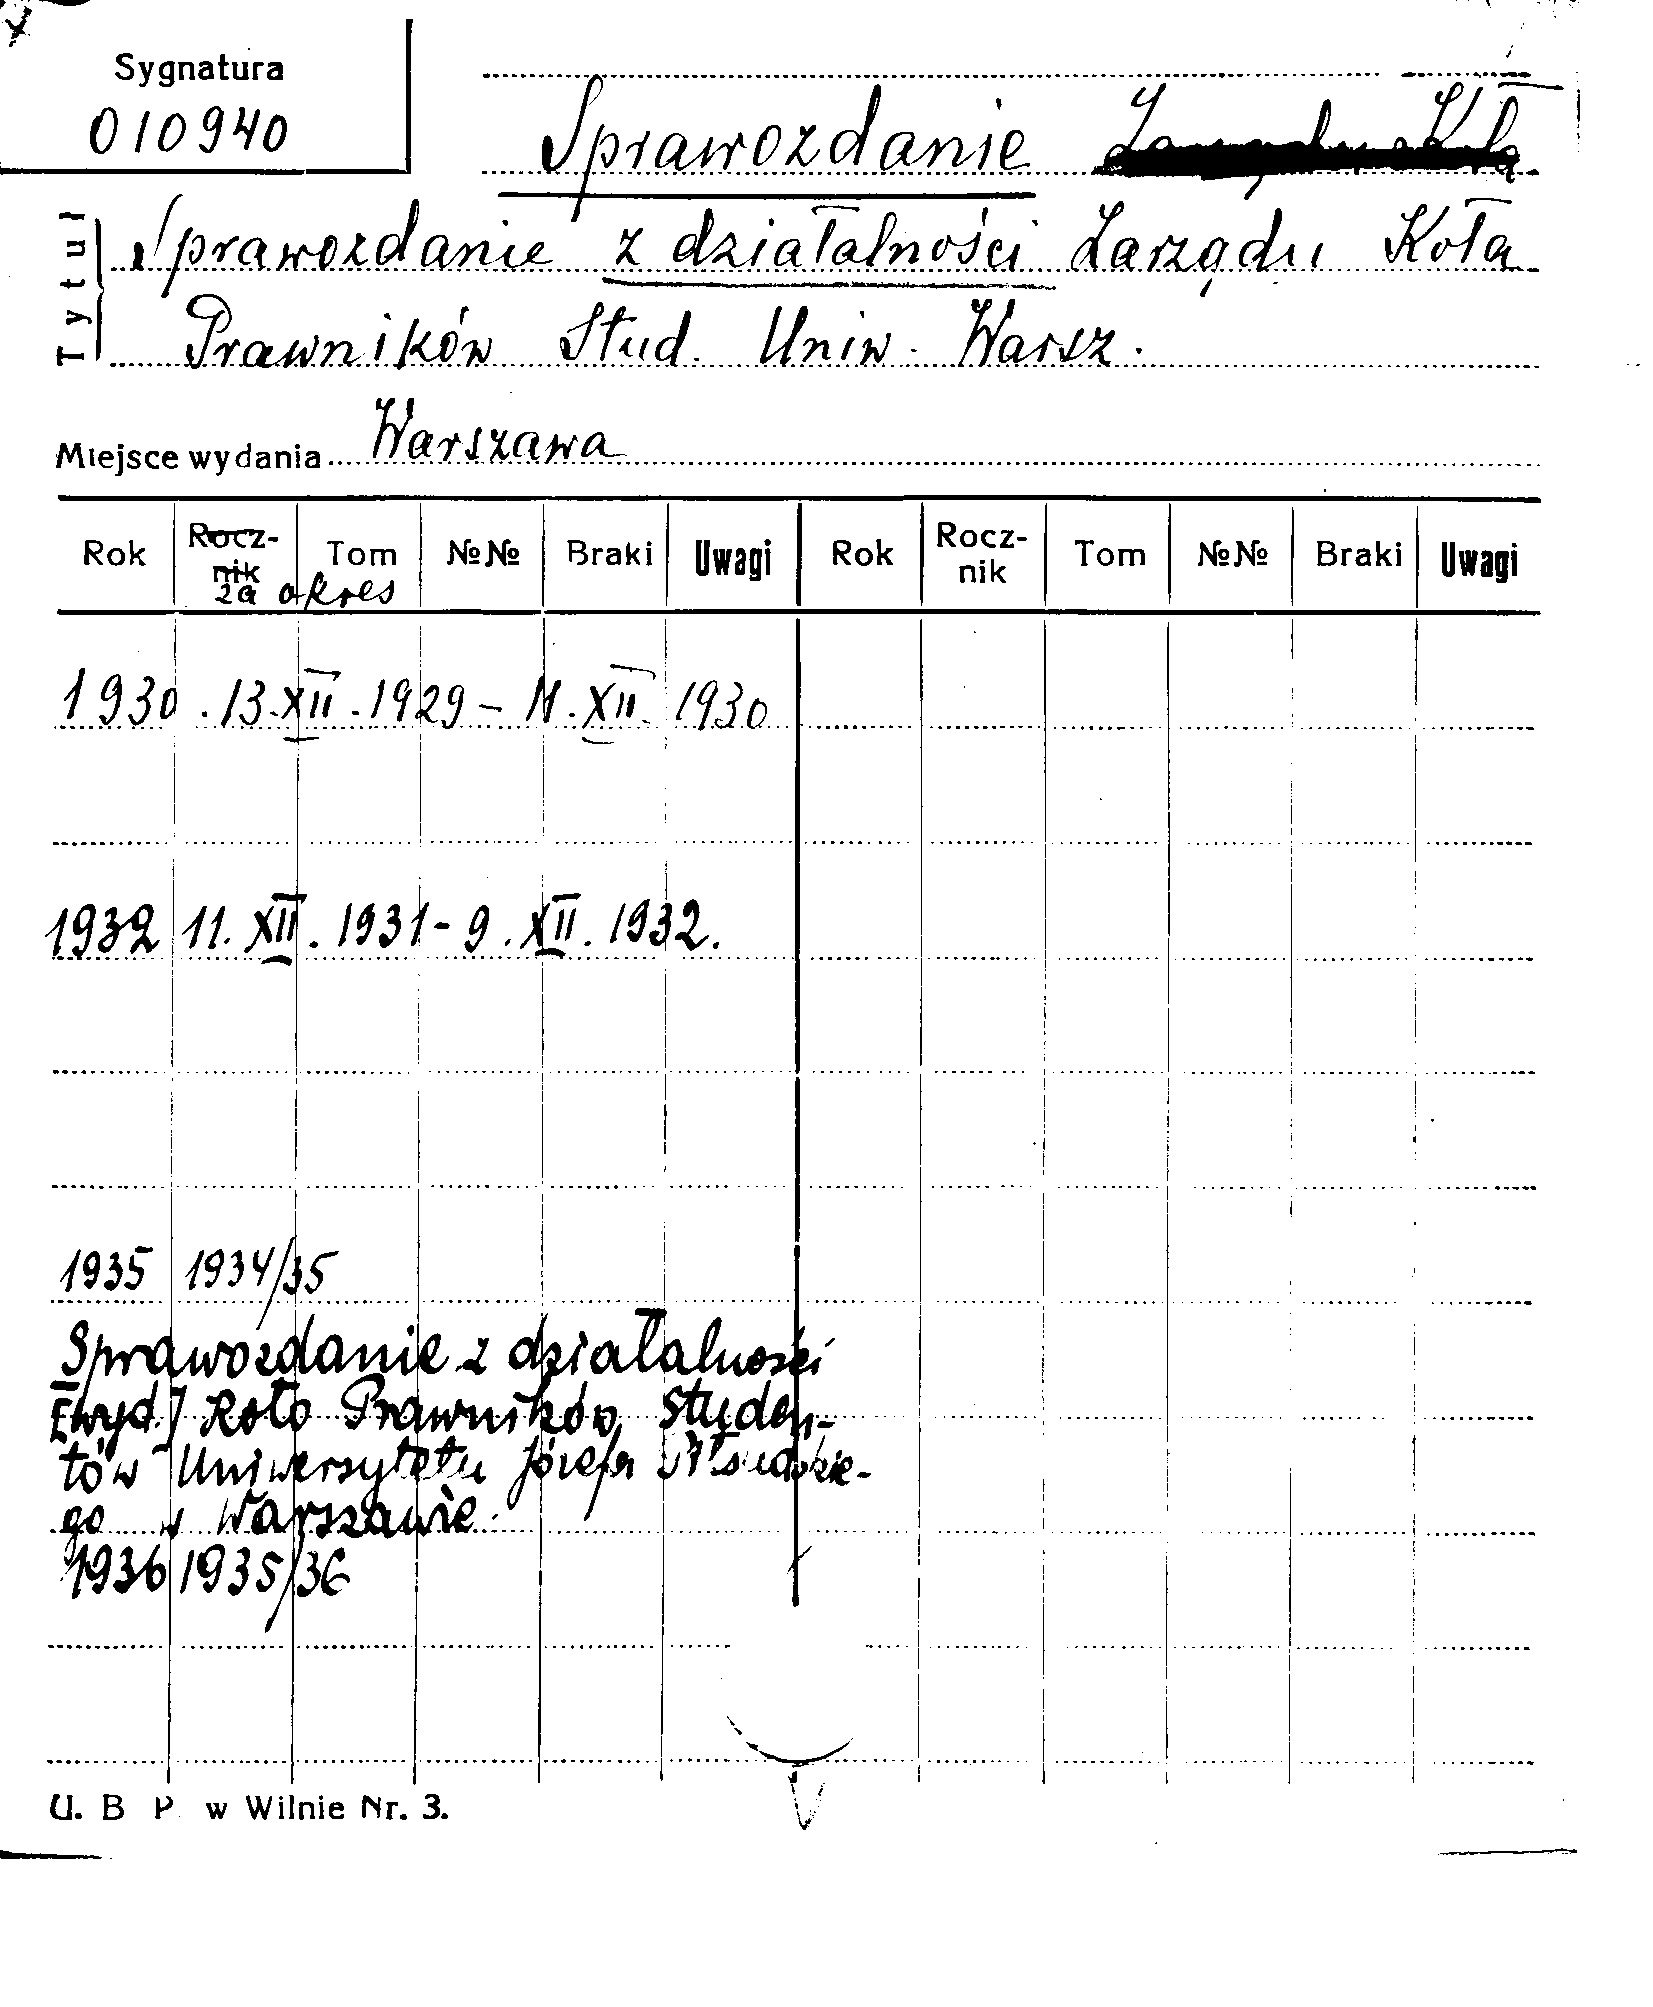 Sygnatura
010940
Sprawozdanie Zarządu Koła
Tytuł
Sprawozdanie z działalności Zarządu Koła
Prawników Stud. Uniw. Warsz.
Miejsce wydania Warszawa
Rok Rocz-nik Tom №№ Braki Uwagi Rok Rocz-nik Tom №№ Braki Uwagi
za okres
1930 . 13.XII.1929 – 11.XII. 1930
1932 11. XII. 1931 - 9. XII. 1932.
1935 1934/35
Sprawozdanie z działalności
[wyd.] Koło Prawników Studen-
tów Uniwersytetu Józefa Piłsudskie-
go w Warszawie.
1936 1935/36
U. B P. w Wilnie Nr. 3.